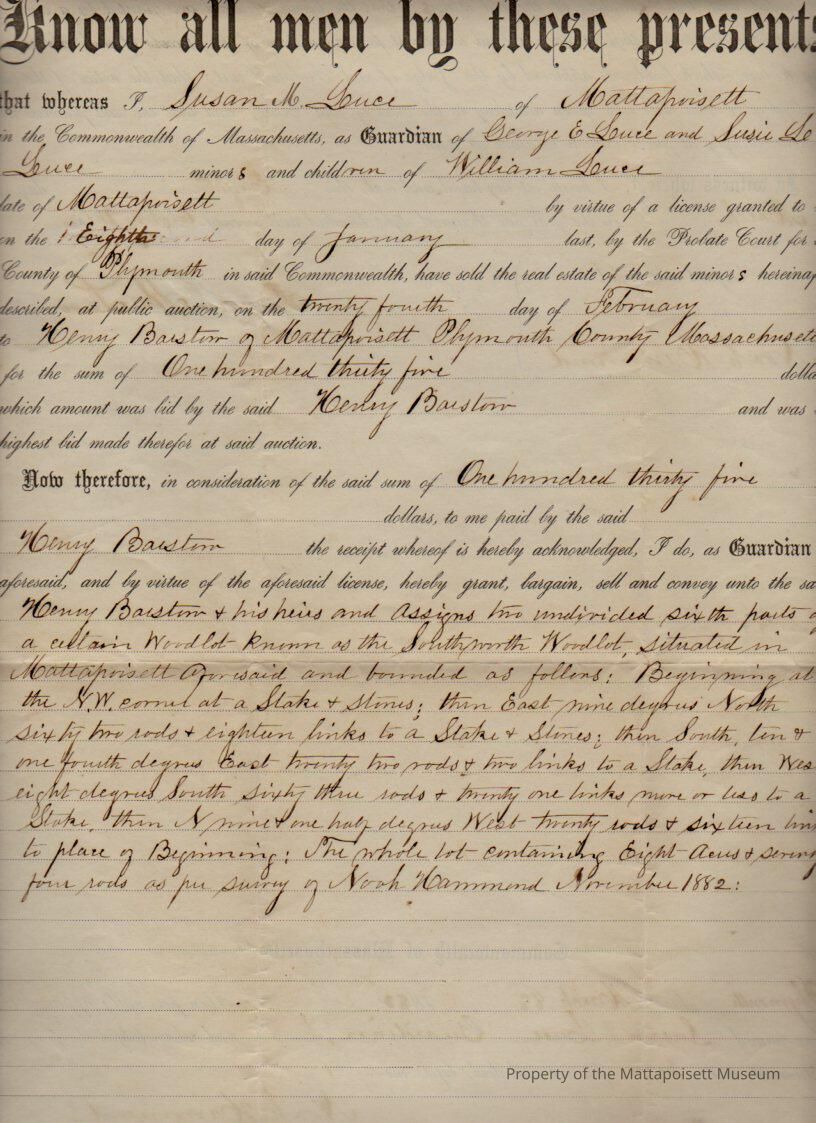 Know all men by these presents
that whereas I, Susan M. Luce of Mattapoisett
in the Commonwealth of Massachusetts, as Guardian of George E Luce and Susie Le
Luce minors and children of William Luce
late of Mattapoisett by virtue of a license granted to
on the Eighth day of January last, by the Probate Court for
County of Plymouth in said Commonwealth, have sold the real estate of the said minors hereinaf
described, at public auction, on the twenty fourth day of February
to Henry Barstow of Mattapoisett Plymouth County Massachusett
for the sum of One hundred thirty five dolla
which amount was bid by the said Henry Barstow and was
highest bid made therefor at said auction.
Now therefore, in consideration of the said sum of One hundred thirty five
dollars, to me paid by the said
Henry Barstow the receipt whereof is hereby acknowledged, I do, as Guardian
aforesaid, and by virtue of the aforesaid license, hereby grant, bargain, sell and convey unto the sa
Henry Barstow & his heirs and Assigns two undivided sixth parts o
a certain Woodlot known as the Southworth Woodlot, situated in
Mattapoisett aforesaid and bounded as follows: Beginning at
the N.W. corner at a Stake & stones; then East nine degrees North
sixty two rods & eighteen links to a Stake & Stones; then South, ten &
one fourth degrees East twenty two rods & two links to a Stake, then Wes
eight degrees South sixty three rods & twenty one links more or less to a
Stake, then N nine & one half degrees West twenty rods & sixteen lin
to place of Beginning; The whole lot containing Eight Acres & seven
four rods as per survey of Noah Hammond November 1882:
Property of the Mattapoisett Museum